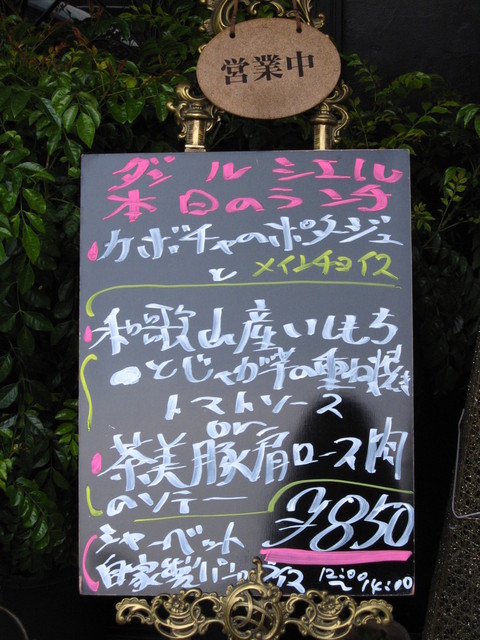 営業中
ダンルシエル
本日のランチ
カボチャのポタージュ
と メインチョイス
和歌山産いしもち
とじゃが芋の重ね焼き
トマトソース
or
茶美豚肩ロース肉
のソテー
¥850
シャーベット
自家製パンorライス 12:00〜14:00